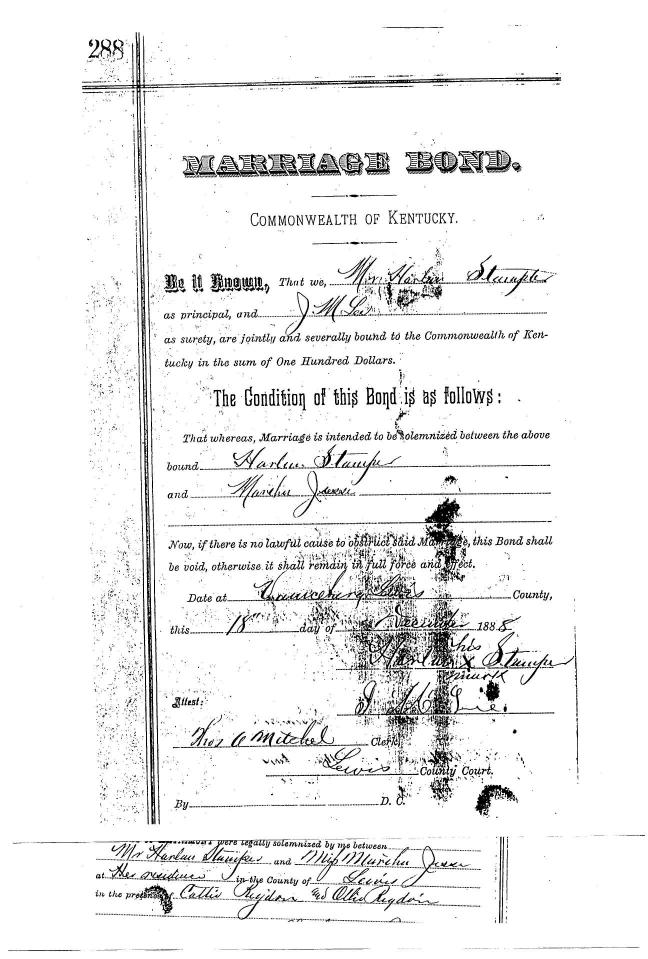 288
MARRIAGE BOND.
COMMONWEALTH OF KENTUCKY.
Be it Known, That we, Mr. Harlan Stamper
as principal, and J M
as surety, are jointly and severally bound to the Commonwealth of Ken-
tucky in the sum of One Hundred Dollars.
The Condition of this Bond is as follows:
That whereas, Marriage is intended to be solemnized between the above
bound Harlan Stamper
and Jesse
Now, if there is no lawful cause to obstruct said Marriage, this Bond shall
be void, otherwise it shall remain in full force and effect.
Date at Vanceburg Lewis County,
this 18" day of December 1888
his
Harlan X Stamper
mark
Attest:
Thos A Mitchel Clerk
Lewis County Court.
By D. C.
were legally solemnized by me between
Mr Harlan Stamper and Miss Jesse
at Her residence in the County of Lewis
in the presence of Cattie Rigdon and Ollie Rigdon